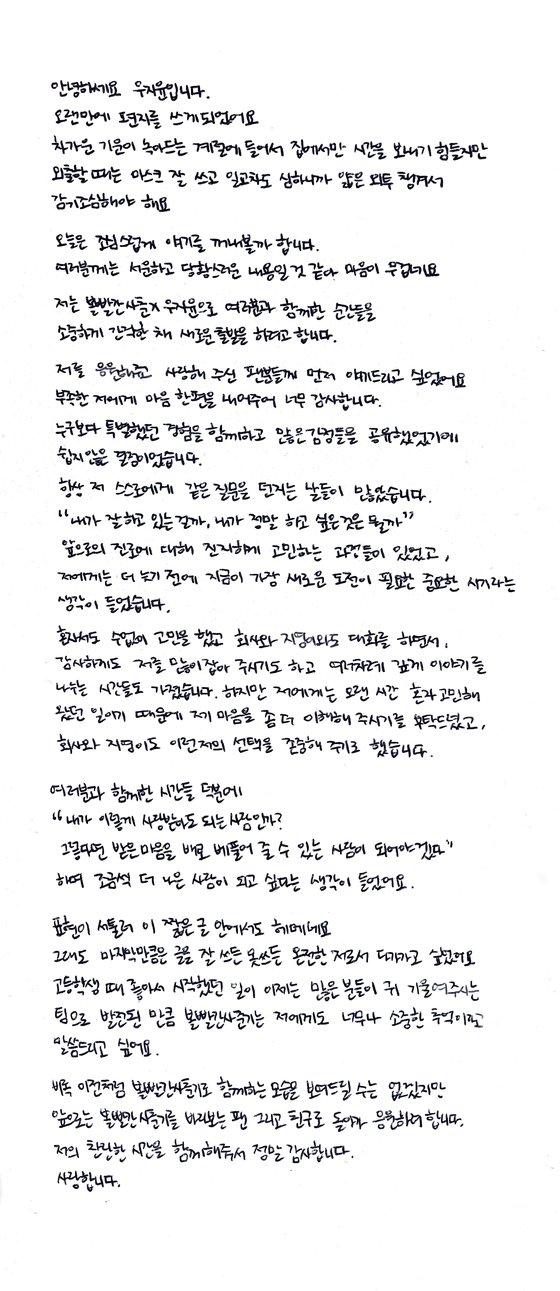 안녕하세요 우지윤입니다.
오랜만에 편지를 쓰게되었어요
차가운 기운이 녹아드는 계절에 들어서 집에서만 시간을 보내기 힘들지만
외출할 때는 마스크 잘 쓰고 일교차도 심하니까 얇은 외투 챙겨서
감기조심해야 해요
오늘은 조심스럽게 얘기를 꺼내볼까 합니다.
여러분께는 서운하고 당황스러운 내용일 것 같아 마음이 무겁네요
저는 볼빨간사춘기 우지윤으로 여러분과 함께한 순간들을
소중하게 간직한 채 새로운 출발을 하려고 합니다.
저를 응원해주고 사랑해 주신 팬분들께 먼저 얘기드리고 싶었어요
부족한 저에게 마음 한편을 내어주어 너무 감사합니다.
누구보다 특별했던 경험을 함께하고 많은감정들을 공유했었기에
쉽지않은 결정이었습니다.
항상 저 스스로에게 같은 질문을 던지는 날들이 많았습니다.
“내가 잘하고 있는걸까, 내가 정말 하고 싶은것은 뭘까”
앞으로의 진로에 대해 진지하게 고민하는 과정들이 있었고,
저에게는 더 늦기 전에 지금이 가장 새로운 도전이 필요한 중요한 시기라는
생각이 들었습니다.
혼자서도 수없이 고민을 했고 회사와 지영이와도 대화를 하면서,
감사하게도 저를 많이 잡아 주시기도 하고 여러차례 깊게 이야기를
나누는 시간들도 가졌습니다. 하지만 저에게는 오랜 시간 혼자 고민해
왔던 일이기 때문에 제 마음을 좀 더 이해해 주시기를 부탁드렸고,
회사와 지영이도 이런저의 선택을 존중해 주기로 했습니다.
여러분과 함께한 시간들 덕분에
“내가 이렇게 사랑받아도 되는 사람인가?
그렇다면 받은 마음을 배로 베풀어 줄 수 있는 사람이 되어야겠다”
하며 조금씩 더 나은 사람이 되고 싶다는 생각이 들었어요.
표현이 서툴러 이 짧은 글 안에서도 헤매네요
그래도 마지막만큼은 글을 잘 쓰든 못쓰든 온전한 저로서 다가가고 싶었어요
고등학생 때 좋아서 시작했던 일이 이제는 많은 분들이 귀 기울여주시는
팀으로 발전된 만큼 볼빨간사춘기는 저에게도 너무나 소중한 추억이라고
말씀드리고 싶어요.
비록 이전처럼 볼빨간사춘기로 함께하는 모습을 보여드릴 수는 없겠지만
앞으로는 볼빨간사춘기를 바라보는 팬 그리고 친구로 돌아가 응원하려 합니다.
저의 찬란한 시간을 함께해줘서 정말 감사합니다.
사랑합니다.